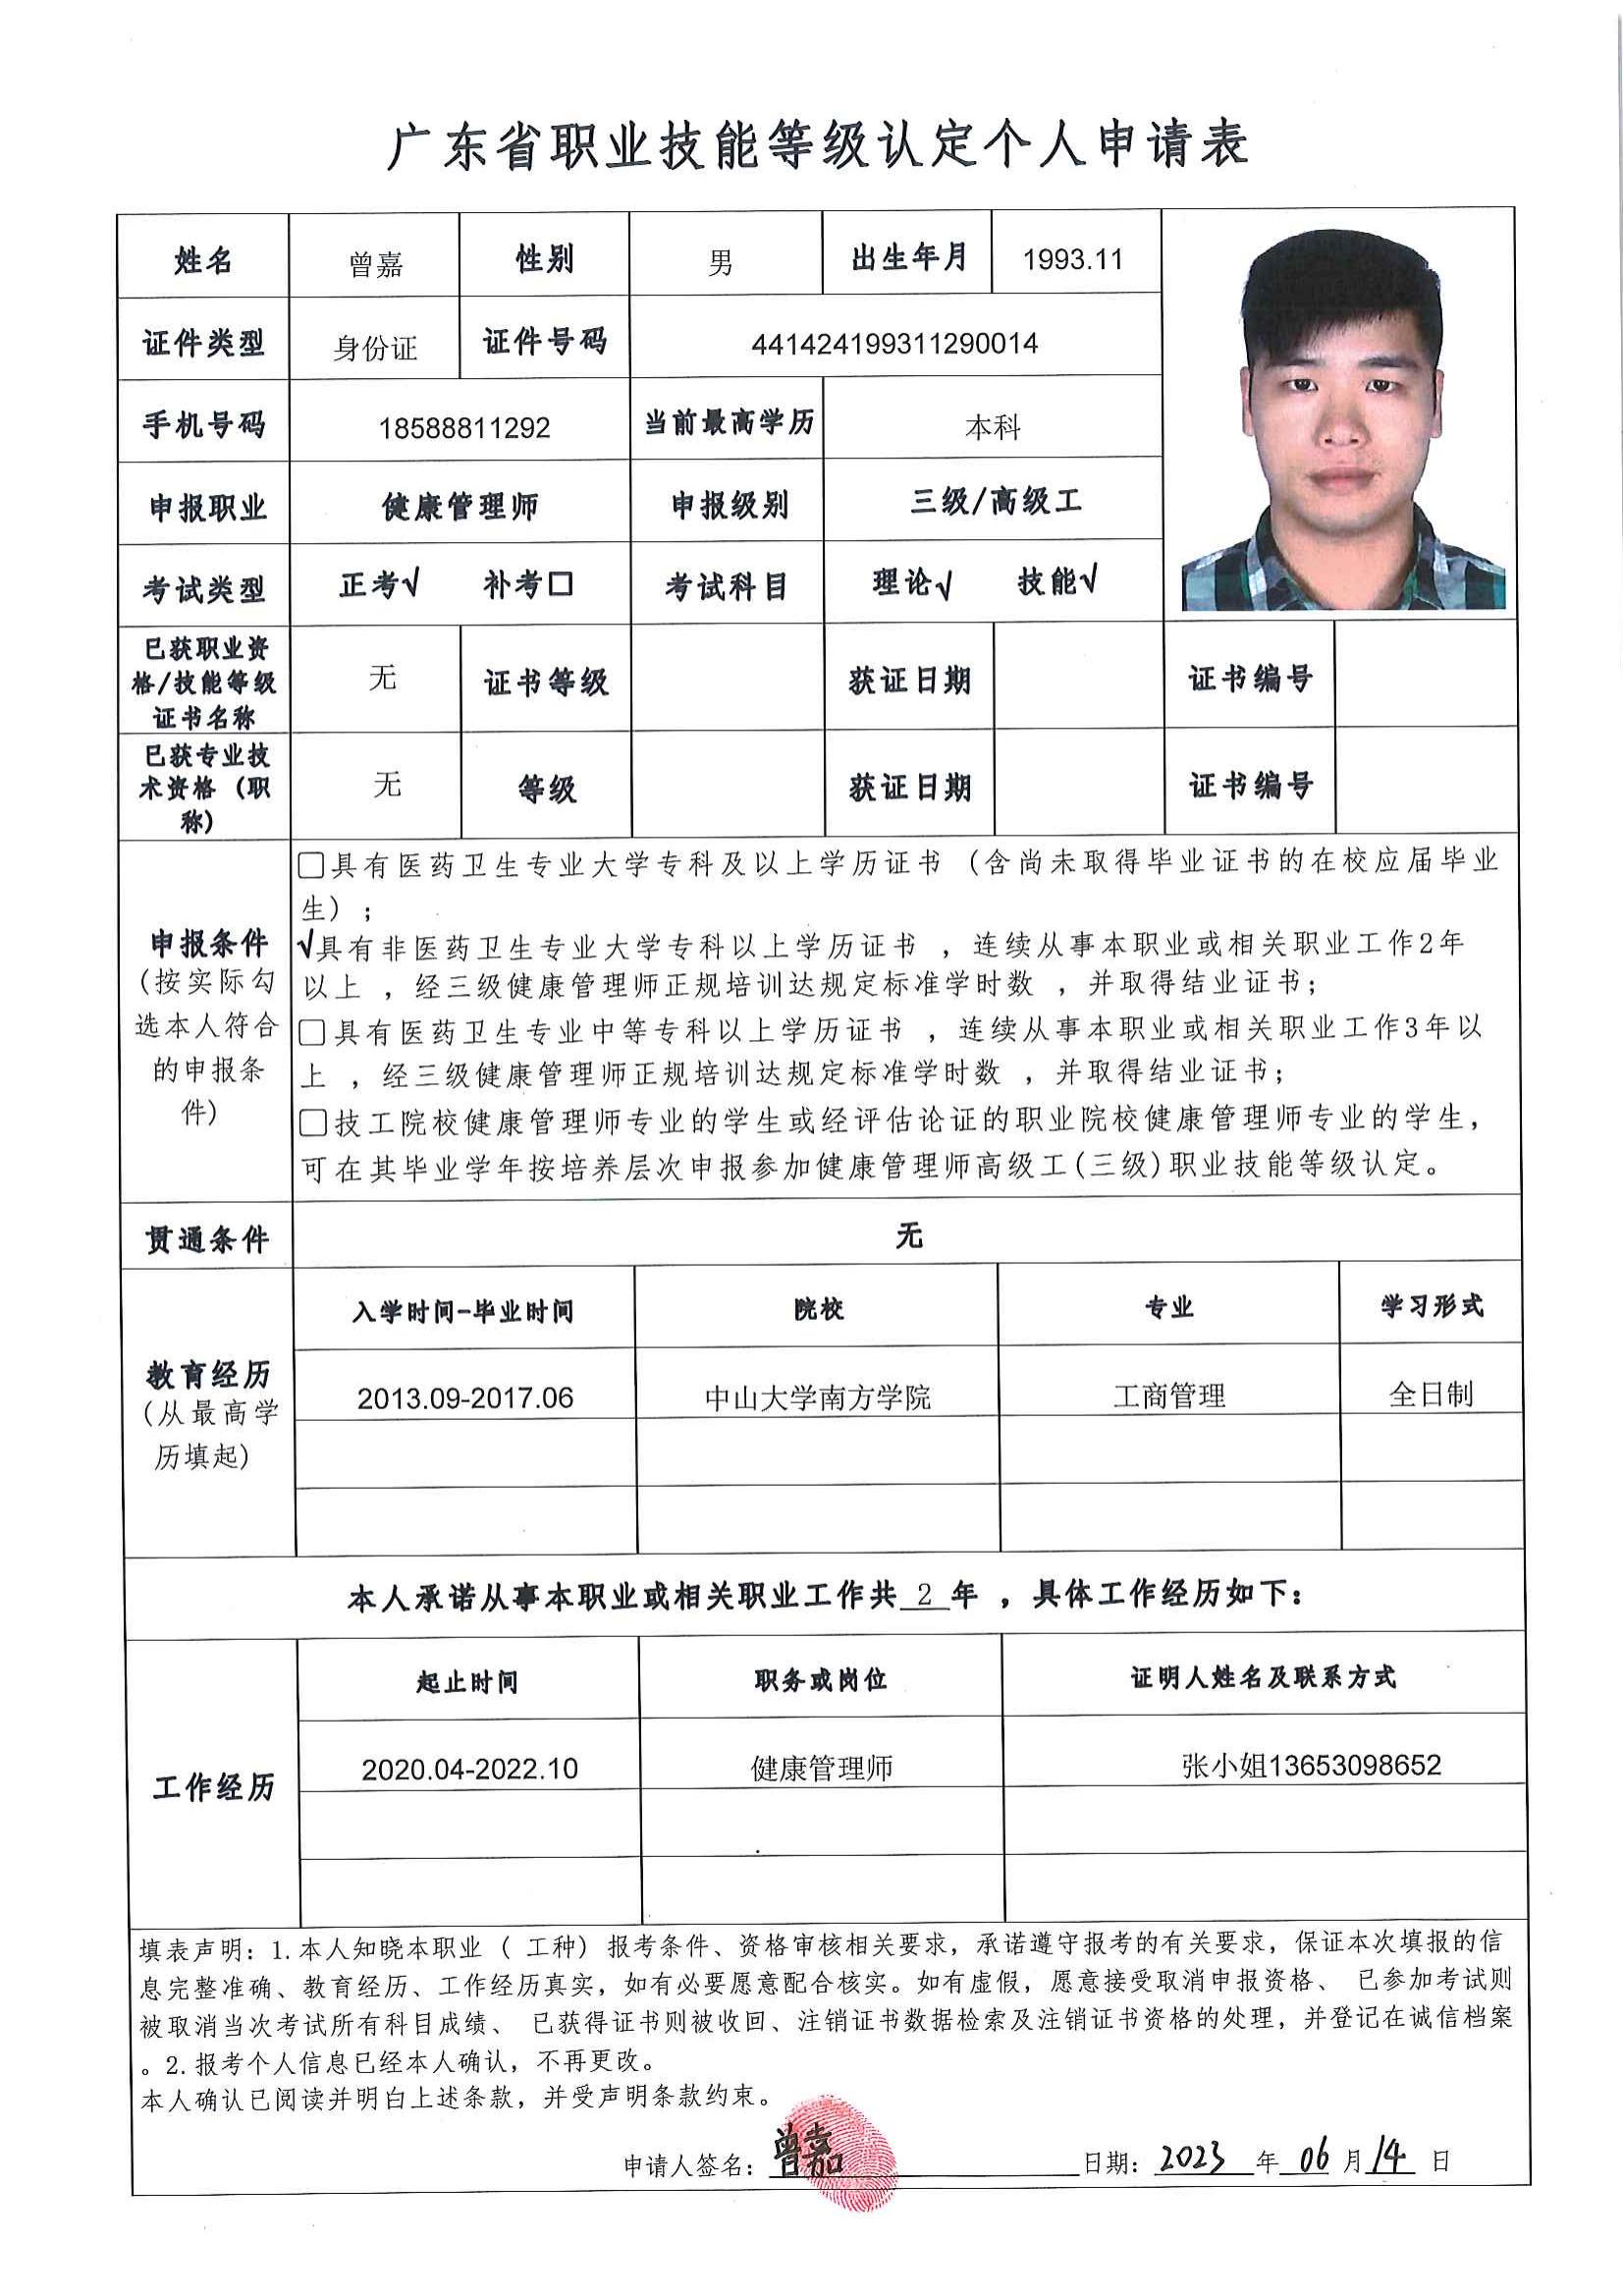 广东省职业技能等级认定个人申请表
姓名 曾嘉 性别 男 出生年月 1993.11
证件类型 身份证 证件号码 441424199311290014
手机号码 18588811292 当前最高学历 本科
申报职业 健康管理师 申报级别 三级/高级工
考试类型 正考√ 补考□ 考试科目 理论√ 技能√
已获职业资
格/技能等级
证书名称
无 证书等级 获证日期 证书编号
已获专业技
术资格（职
称）
无 等级 获证日期 证书编号
申报条件
（按实际勾
选本人符合
的申报条
件）
□具有医药卫生专业大学专科及以上学历证书（含尚未取得毕业证书的在校应届毕业
生）；
√具有非医药卫生专业大学专科以上学历证书，连续从事本职业或相关职业工作2年
以上，经三级健康管理师正规培训达规定标准学时数，并取得结业证书；
□具有医药卫生专业中等专科以上学历证书，连续从事本职业或相关职业工作3年以
上，经三级健康管理师正规培训达规定标准学时数，并取得结业证书；
□技工院校健康管理师专业的学生或经评估论证的职业院校健康管理师专业的学生，
可在其毕业学年按培养层次申报参加健康管理师高级工(三级)职业技能等级认定。
贯通条件 无
教育经历
（从最高学
历填起）
入学时间-毕业时间 院校 专业 学习形式
2013.09-2017.06 中山大学南方学院 工商管理 全日制
本人承诺从事本职业或相关职业工作共 2 年，具体工作经历如下：
工作经历
起止时间 职务或岗位 证明人姓名及联系方式
2020.04-2022.10 健康管理师 张小姐13653098652
填表声明：1.本人知晓本职业（工种）报考条件、资格审核相关要求，承诺遵守报考的有关要求，保证本次填报的信
息完整准确、教育经历、工作经历真实，如有必要愿意配合核实。如有虚假，愿意接受取消申报资格、 已参加考试则
被取消当次考试所有科目成绩、 已获得证书则被收回、注销证书数据检索及注销证书资格的处理，并登记在诚信档案
。2.报考个人信息已经本人确认，不再更改。
本人确认已阅读并明白上述条款，并受声明条款约束。
申请人签名：曾嘉 日期：2023 年 06 月 14 日